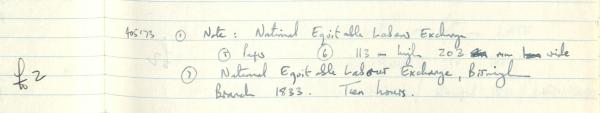 405173 ① Note: National Equitable Labour Exchange
⑤ Paper ⑥ 113 mm high 203 mm wide
⑦ National Equitable Labour Exchange, Birmingh
£2 Branch 1833. Ten hours.